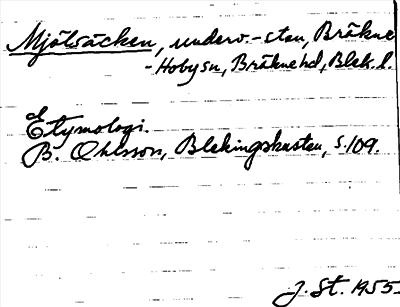 Mjölsäcken, underv.-sten, Bräkne
-Hoby sn, Bräkne hd, Blek. l.
Etymologi.
B. Ohlsson, Blekingskusten, s. 109.
J. St. 1955.